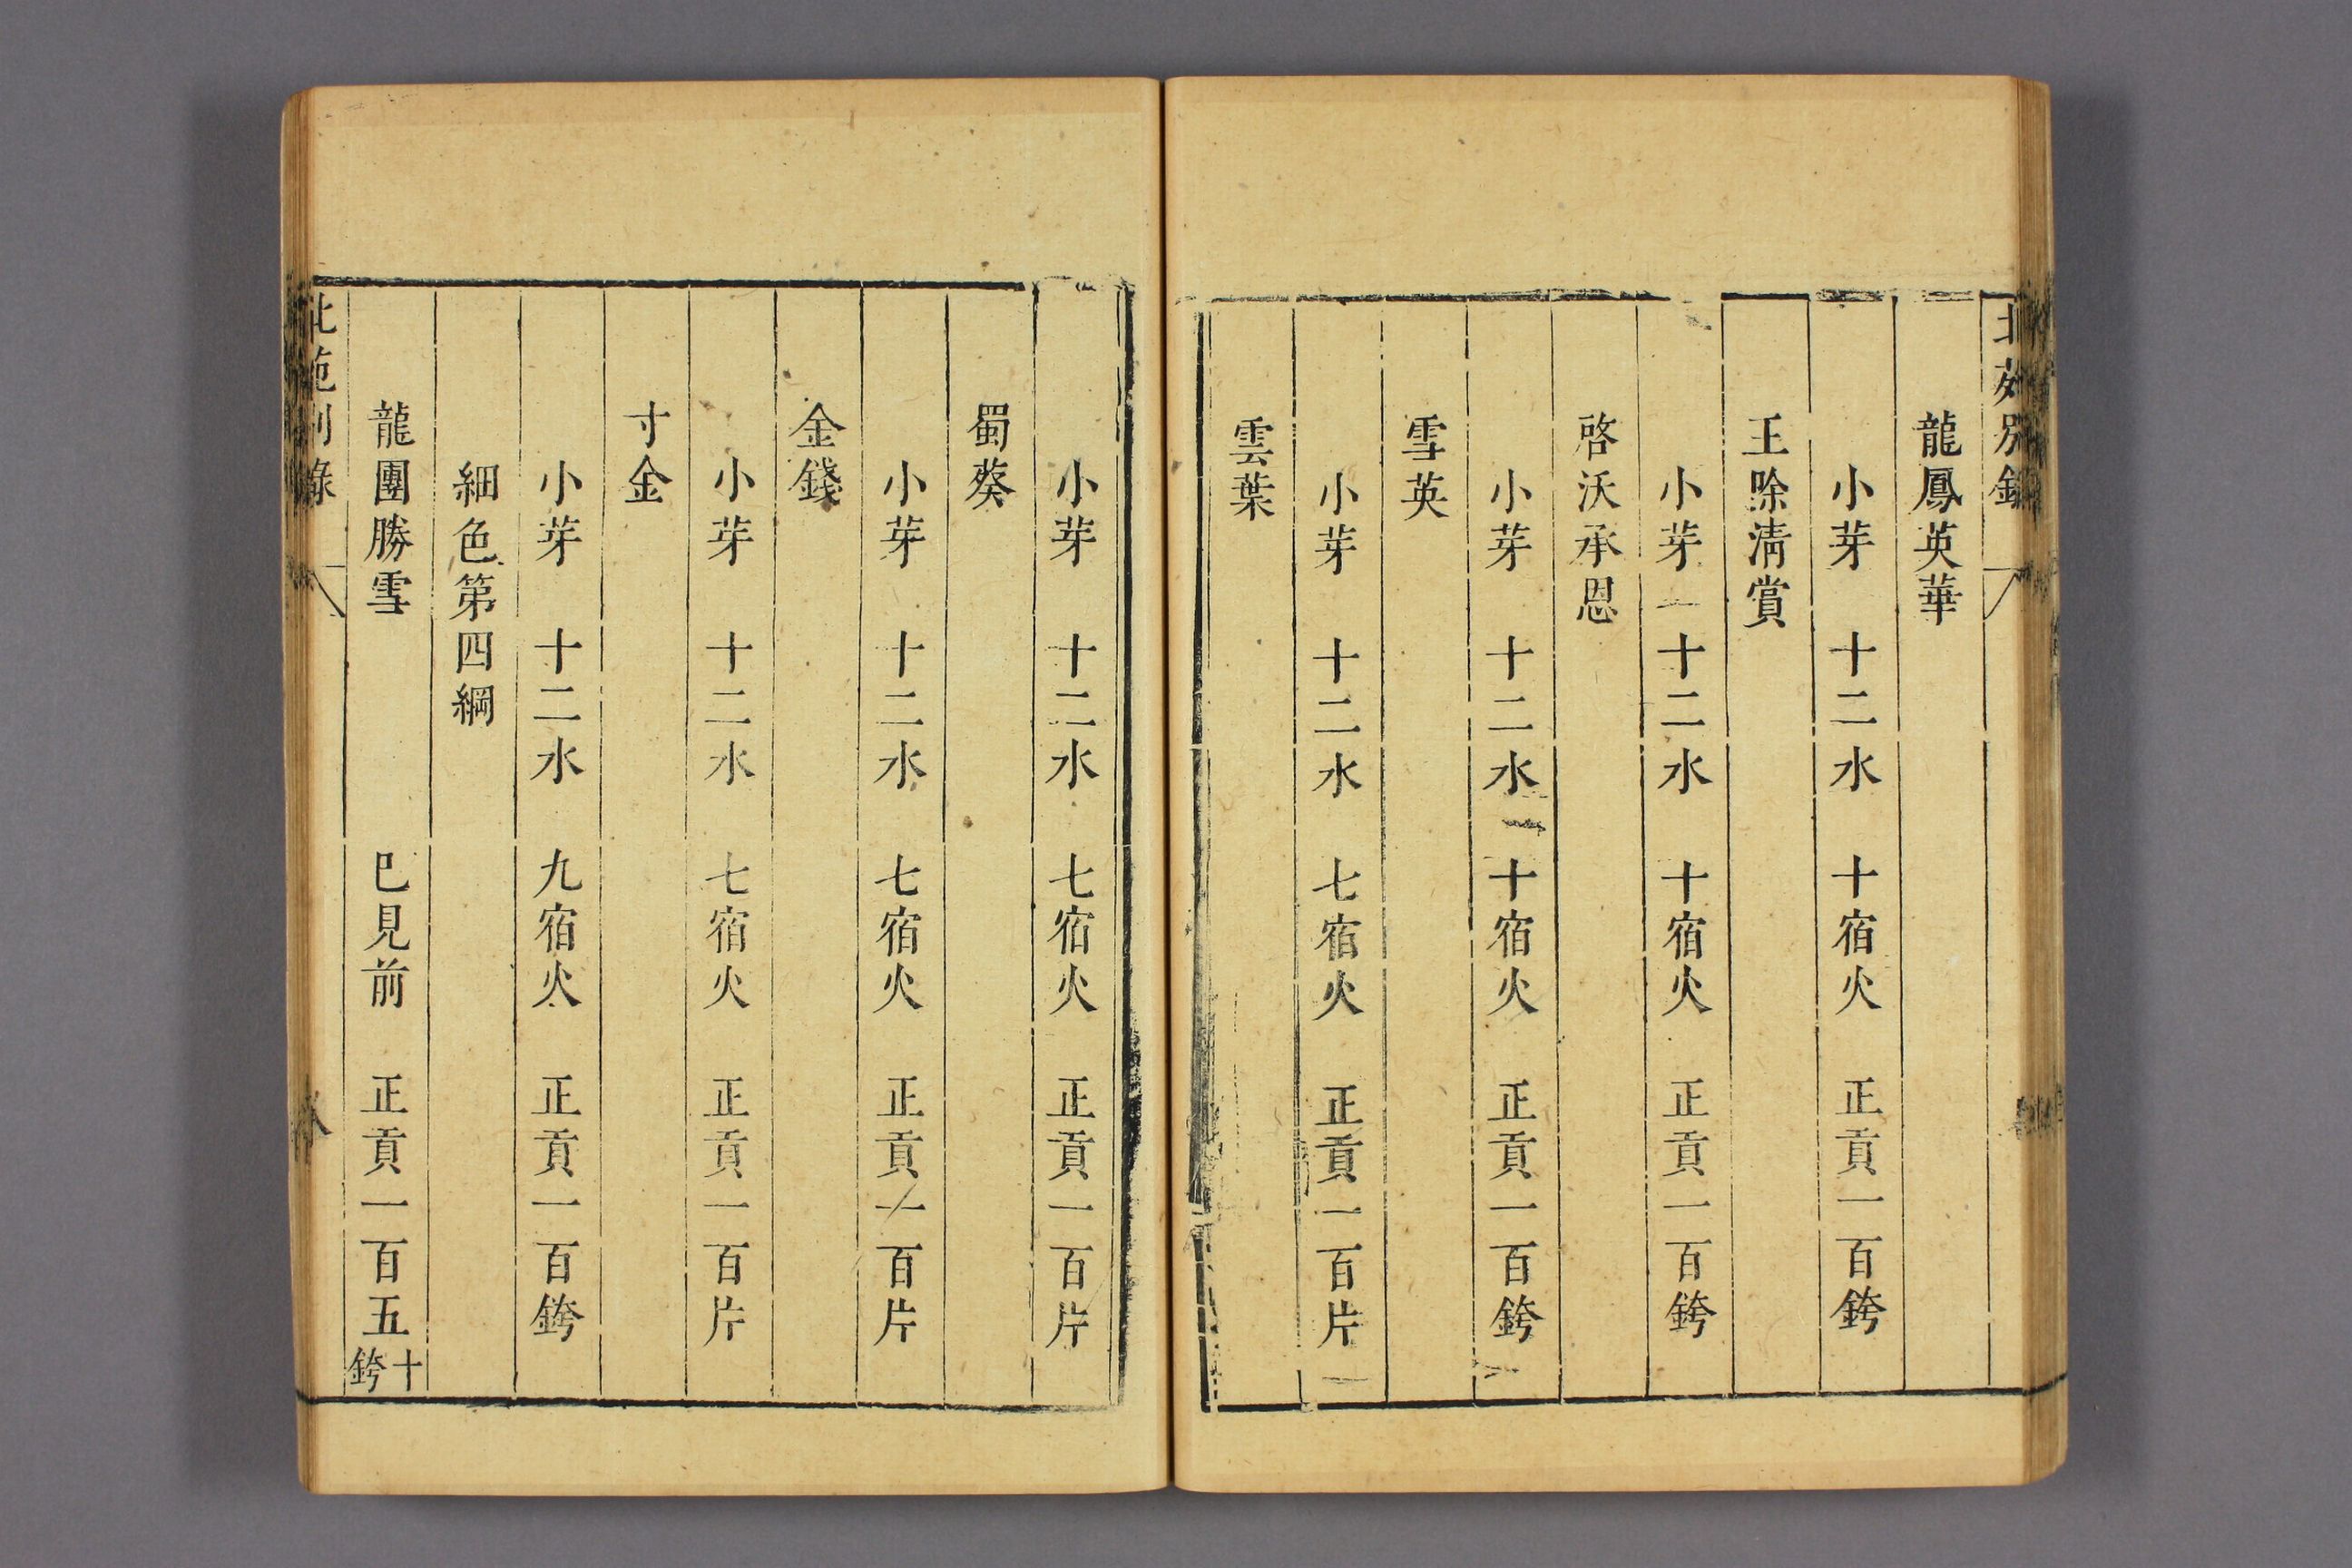 北苑別錄
龍鳳英華
小芽 十二水 十宿火 正貢一百銙
王除清賞
小芽 十二水 十宿火 正貢一百銙
啓沃承恩
小芽 十二水 十宿火 正貢一百銙
雪英
小芽 十二水 七宿火 正貢一百片
雲葉
小芽 十二水 七宿火 正貢一百片
蜀葵
小芽 十二水 七宿火 正貢一百片
金錢
小芽 十二水 七宿火 正貢一百片
寸金
小芽 十二水 九宿火 正貢一百銙
細色第四綱
龍團勝雪 巳見前 正貢一百五十銙
北苑別錄 八